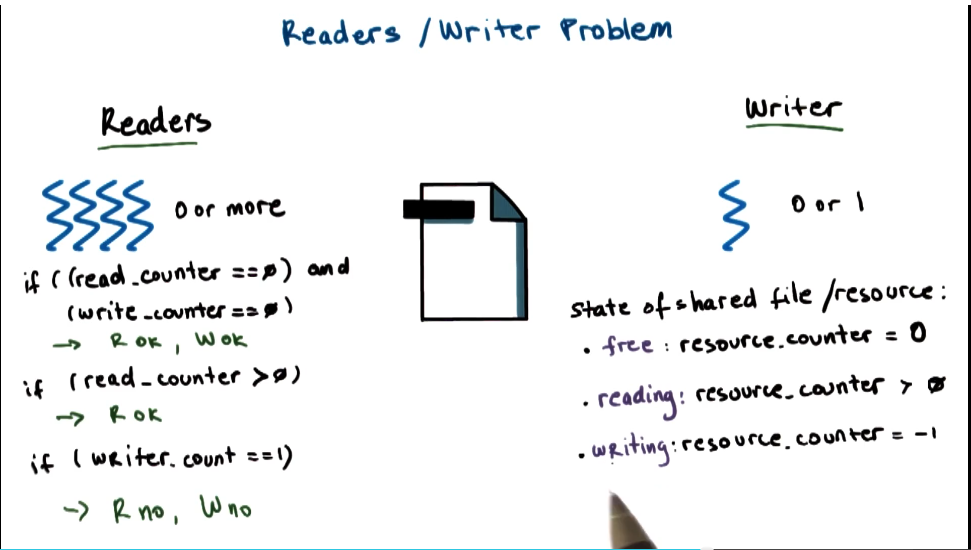 Readers / Writer Problem
Readers
0 or more
if ((read_counter == ø) and
(write_counter == ø)
→ R OK, W OK
if (read_counter > ø)
→ R OK
if (writer_count == 1)
→ R no, W no
Writer
0 or 1
State of shared file/resource:
• free: resource_counter = 0
• reading: resource_counter > ø
• writing: resource_counter = -1